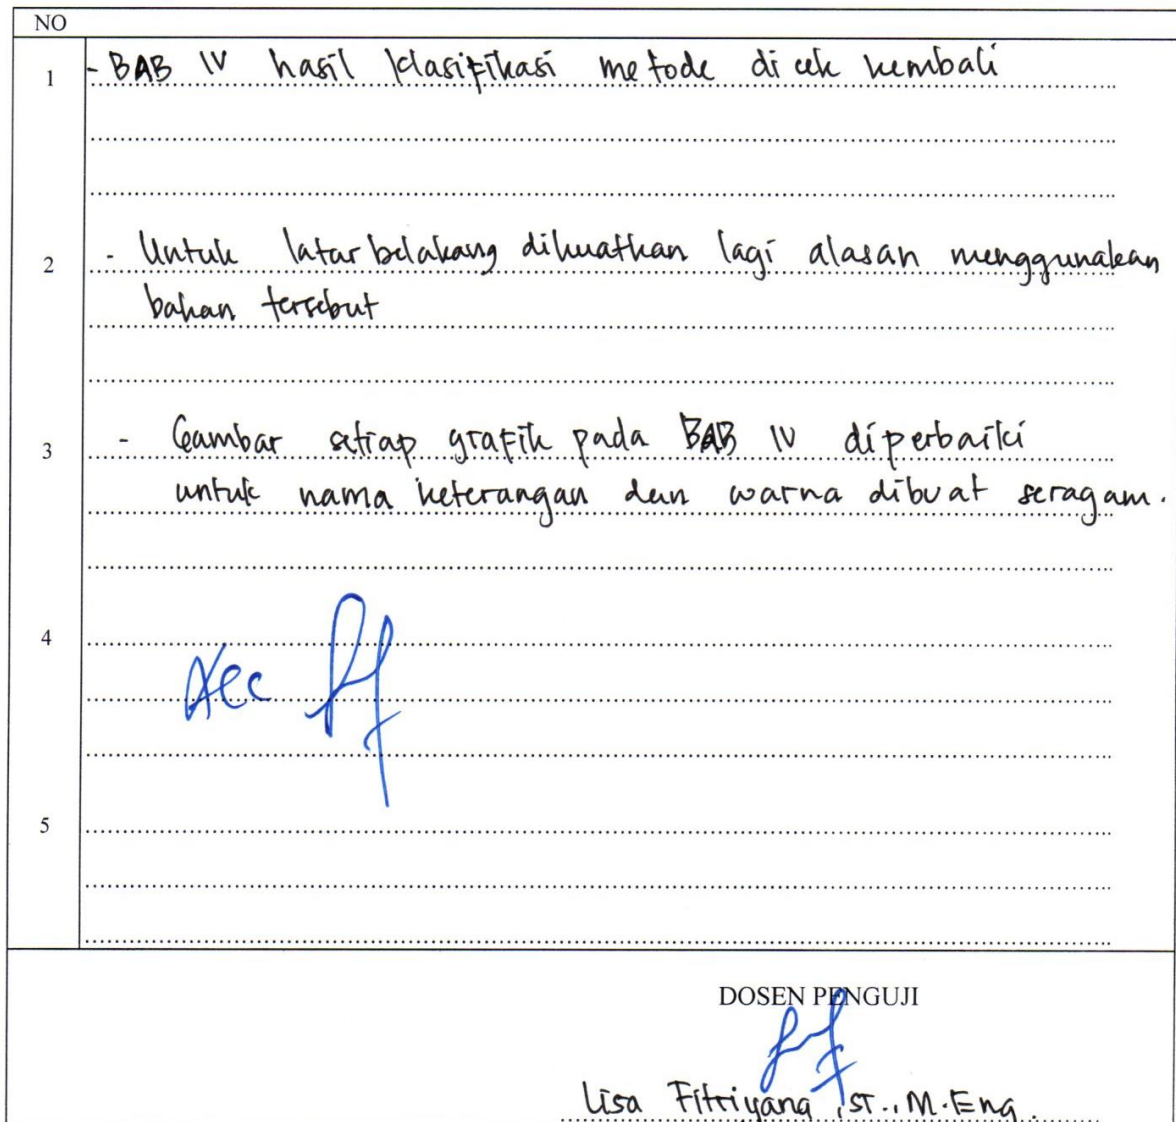 NO
1 - BAB IV hasil klasifikasi metode di cek kembali
2 - Untuk latar belakang dikuatkan lagi alasan menggunakan
bahan tersebut
3 - Gambar setiap grafik pada BAB IV diperbaiki
untuk nama keterangan dan warna dibuat seragam.
4
Acc
5
DOSEN PENGUJI
Lisa Fitriyana, ST., M.Eng.